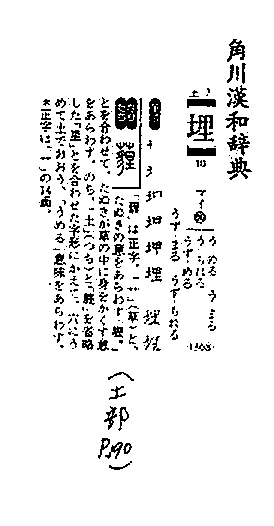 角川漢和辞典
土 7
埋
10
マイ
うめる うまる
うもれる
うずめる
うずまる うずもれる
1368
埋 埋
「薶」は正字。「艹」(草)と、
たぬきの意をあらわす「貍」
とを合わせて、たぬきが草の中に身をかくす意
をあらわす。のち、「土」(つち)と「貍」を省略
した「里」とを合わせた字形にかえて、穴にう
めて土でおおう、「うめる」意味をあらわす。
(土部
P.190)